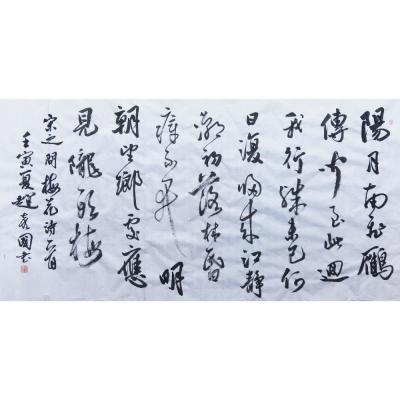 陽月南飛鴈
傳聞至此迴
我行殊未已何
日復歸來江靜
潮初落林昏
瘴不開明
朝望鄉處應
見隴頭梅
宋之問梅花詩一首
壬寅夏趙國書